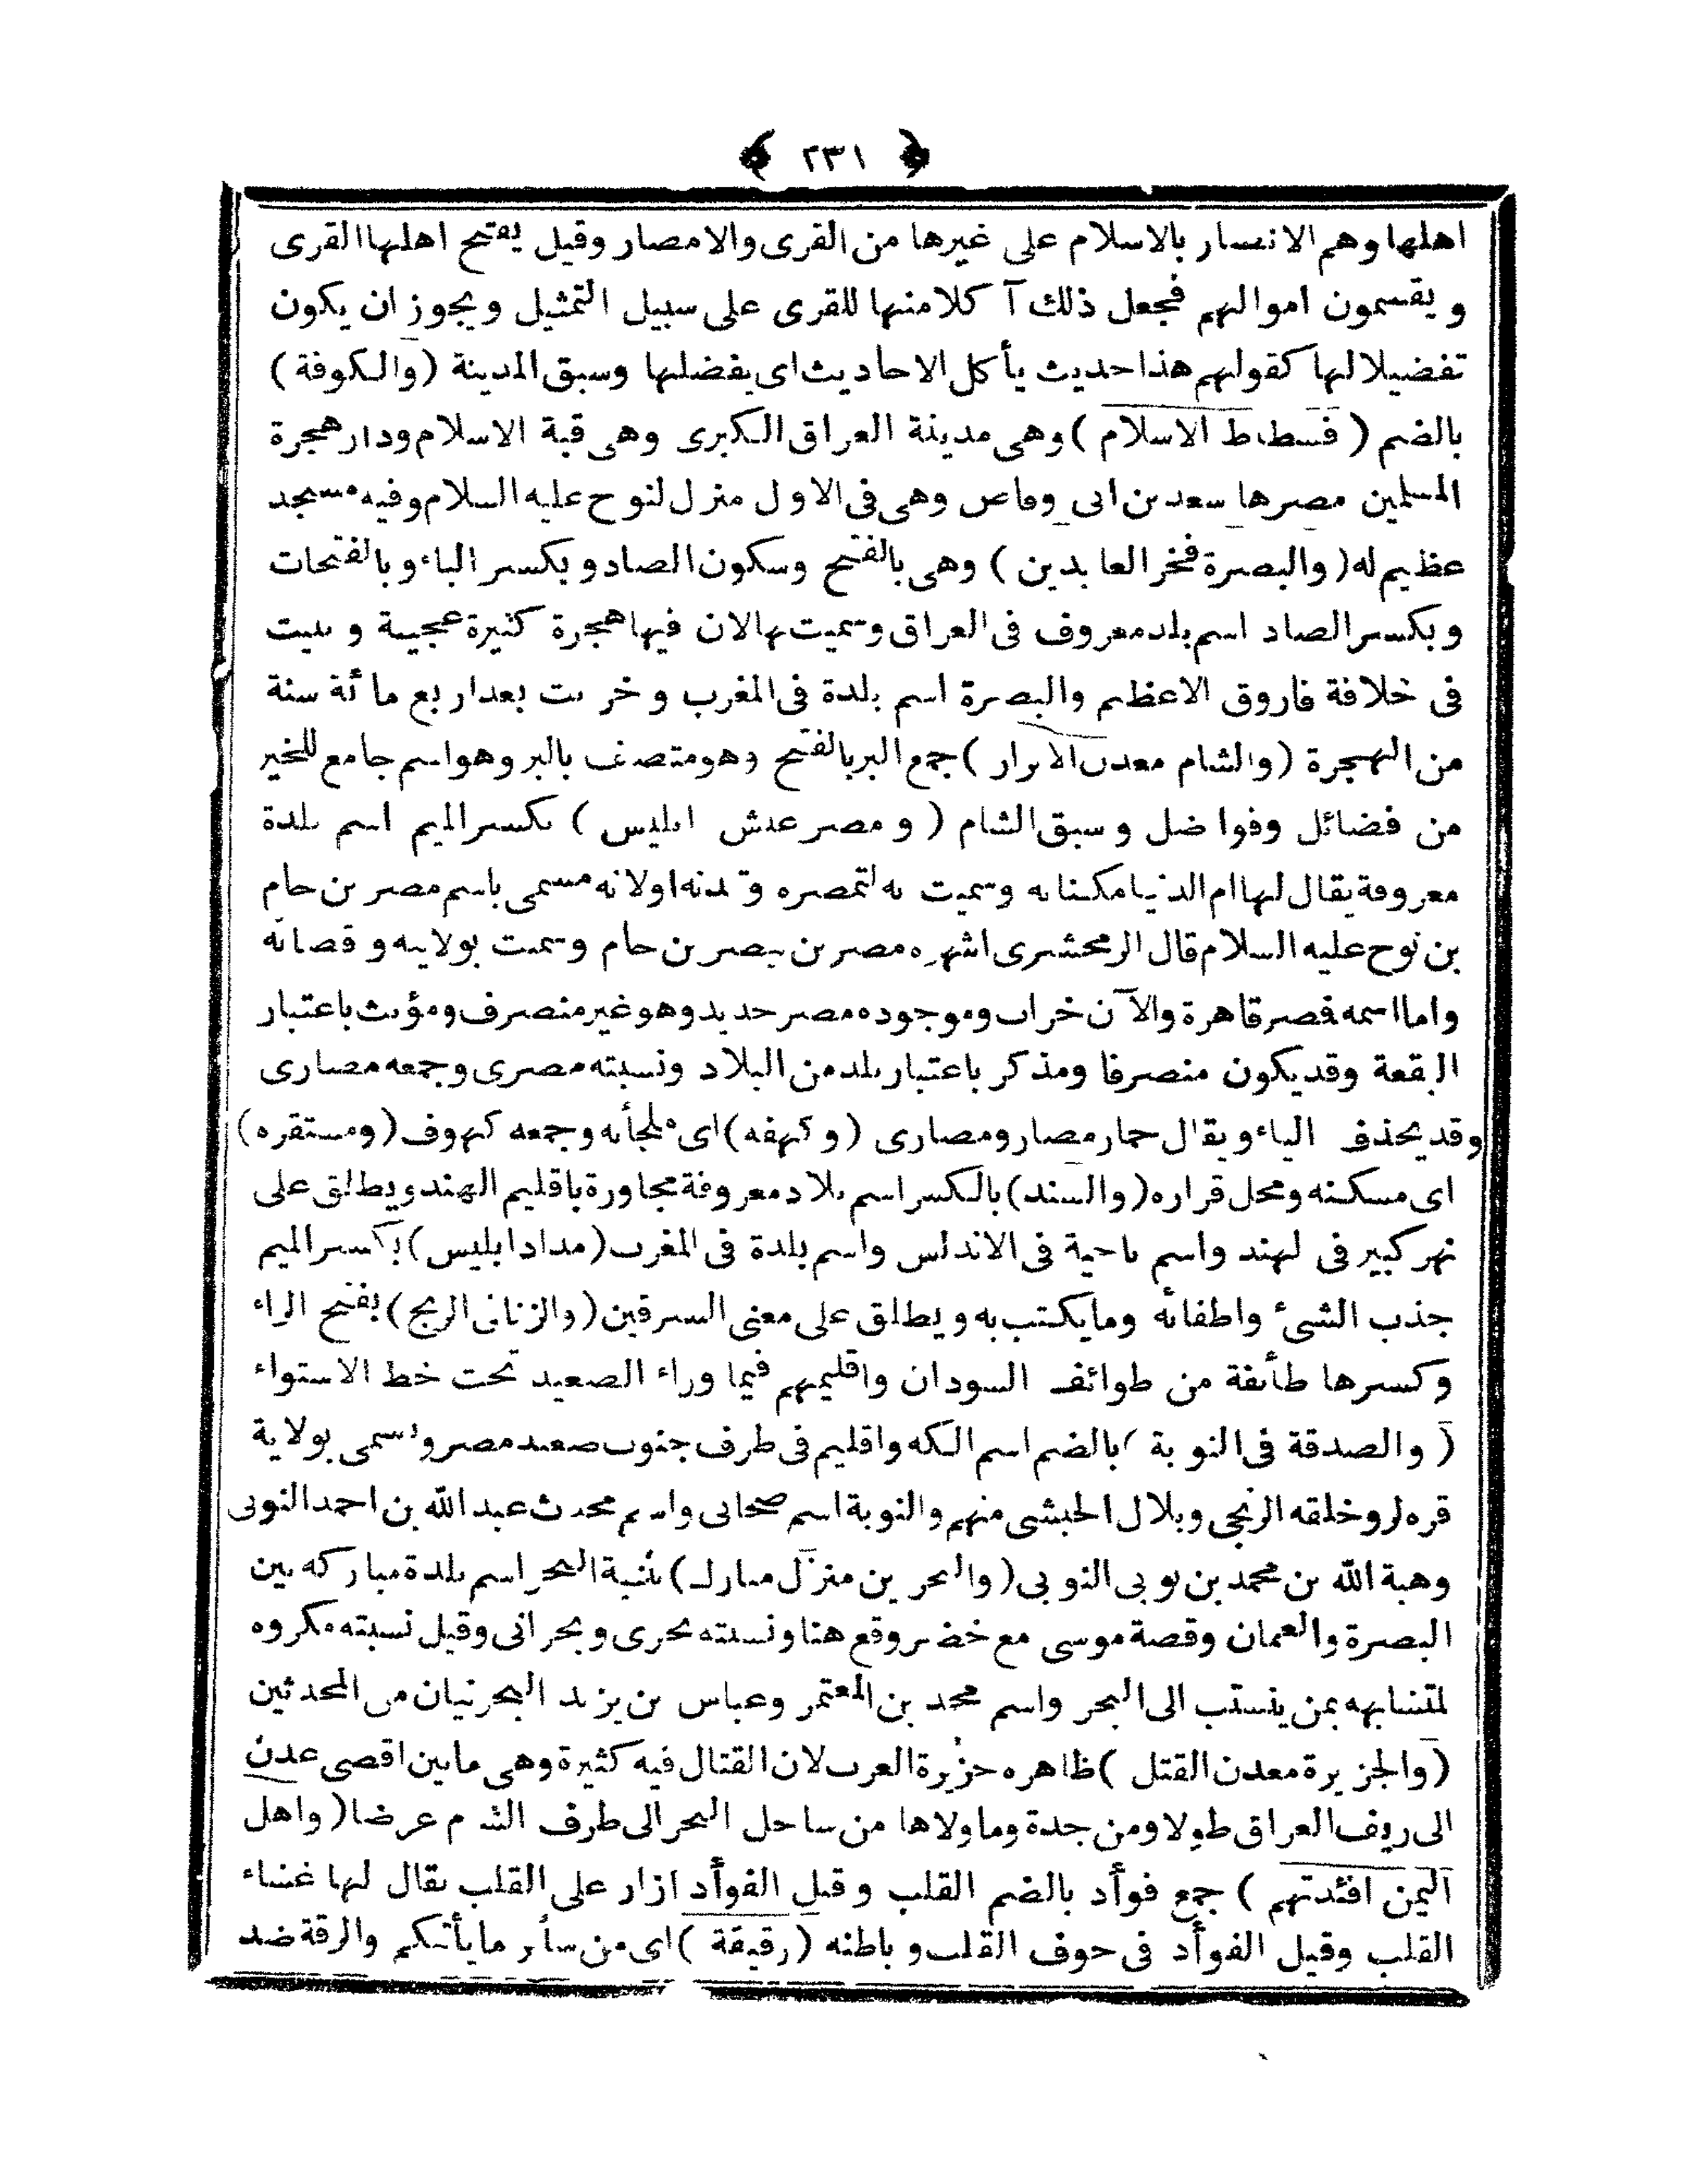 ﴿ ٢٣١ ﴾
اهلها وهم الانصار بالاسلام على غيرها من القرى والامصار وقيل يفتح اهلها القرى
ويقسمون اموالهم فجعل ذلك آ كلا منها للقرى على سبيل التمثيل ويجوز ان يكون
تفضيلا لها كقولهم هذا حديث يأكل الاحاديث اى يفضلها وسبق المدينة (والكوفة)
بالضم (فسطاط الاسلام) وهى مدينة العراق الكبرى وهى قبة الاسلام ودار هجرة
المسلمين مصرها سعد بن ابى وقاص وهى فى الاول منزل لنوح عليه السلام وفيه مسجد
عظيم له (والبصرة فخر العابدين) وهى بالفتح وسكون الصاد وبكسر الباء وبالفتحات
وبكسر الصاد اسم بلد معروف فى العراق وسميت بها لان فيها هجرة كثيرة عجيبة وبنيت
فى خلافة فاروق الاعظم والبصرة اسم بلدة فى المغرب وخربت بعد اربع مائة سنة
من الهجرة (والشام معدن الابرار) جمع البر بالفتح وهو متصف بالبر وهو اسم جامع للخير
من فضائل وفواضل وسبق الشام (ومصر عش ابليس) بكسر الميم اسم بلدة
معروفة يقال لها ام الدنيا مكنا به وسميت به لتمصره وتمدنه اولانه مسمى باسم مصر بن حام
بن نوح عليه السلام قال الزمحشرى اشهره مصر بن بيصر بن حام وسميت بولايته وقصاته
واما اسمه فصر قاهرة والآن خراب وموجوده مصر جديد وهو غير منصرف ومؤنث باعتبار
البقعة وقد يكون منصرفا ومذكر باعتبار بلد من البلاد ونسبته مصرى وجمعه مصارى
وقد يحذف الياء ويقال حمار مصار ومصارى (وكهفه) اى ملجأبه وجمعه كهوف (ومستقره)
اى مسكنه ومحل قراره (والسند) بالكسر اسم بلاد معروفة مجاورة باقليم الهند ويطلق على
نهر كبير فى لهند واسم ناحية فى الاندلس واسم بلدة فى المغرب (مداد ابليس) بكسر الميم
جذب الشئ واطفائه وما يكتب به ويطلق على معنى السرقين (والزنا فى الزنج) بفتح الزاء
وكسرها طائفة من طوائف السودان واقليمهم فيما وراء الصعيد تحت خط الاستواء
(والصدقة فى النوبة) بالضم اسم الكه واقليم فى طرف جنوب صعيد مصر ويسمى بولاية
قره لر وخلقه الزنجى وبلال الحبشى منهم والنوبة اسم صحابى واسم محدث عبد الله بن احمد النوبى
وهبة الله بن محمد بن نوبى النوبى (والبحرين منزل مبارك) تثنية البحر اسم بلدة مباركه بين
البصرة والعمان وقصة موسى مع خضر وقع هنا ونسبته بحرى وبحرانى وقيل نسبته مكروه
لمتشابهه بمن ينستب الى البحر واسم محمد بن المعتمر وعباس بن يزيد البحرنيان من المحدثين
(والجزيرة معدن القتل) ظاهره جزيرة العرب لان القتال فيه كثيرة وهى مابين اقصى عدن
الى ريف العراق طولا ومن جدة وماولاها من ساحل البحر الى طرف الشام عرضا (واهل
اليمن افئدتهم) جمع فوأد بالضم القلب وقيل الفوأد ازار على القلب يقال لها غشاء
القلب وقيل الفوأد فى جوف القلب وباطنه (رقيقة) اى من سائر مايأتيكم والرقة ضد